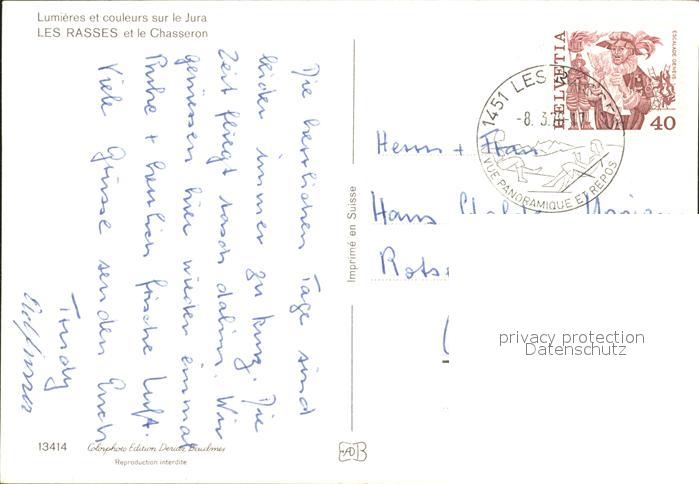 Lumières et couleurs sur le Jura
LES RASSES et le Chasseron
Die herrlichen Tage sind
leider immer zu kurz. Die
Zeit fliegt rasch dahin. Wir
geniessen hier wieder einmal
Ruhe + herrlich frische Luft.
Viele Grüsse senden Euch
Trudy
13414
Colorphoto Edition Deriaz Baulmes
Reproduction interdite
Imprimé en Suisse
HELVETIA
ESCALADE GENÈVE
40
1451 LES
-8. 3.
VUE PANORAMIQUE ET REPOS
Herrn + Frau
Hans
privacy protection
Datenschutz